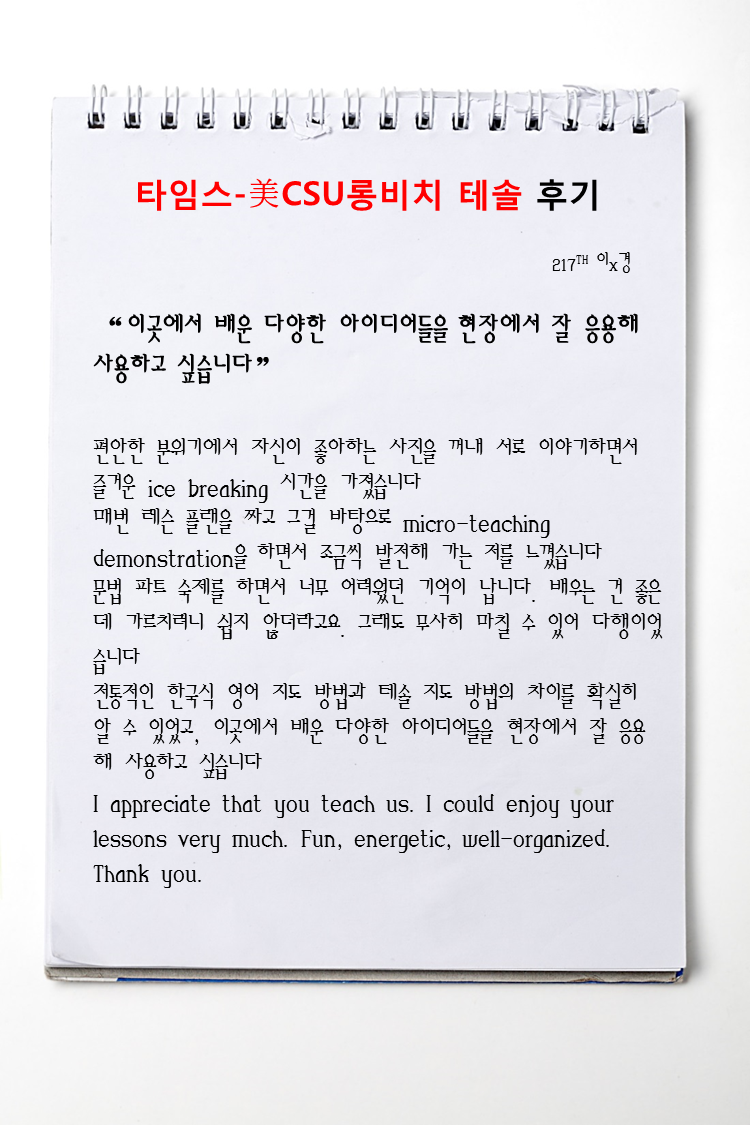 타임스-美CSU롱비치 테솔 후기
217TH 이x경
“이곳에서 배운 다양한 아이디어들을 현장에서 잘 응용해
사용하고 싶습니다”
편안한 분위기에서 자신이 좋아하는 사진을 꺼내 서로 이야기하면서
즐거운 ice breaking 시간을 가졌습니다
매번 레슨 플랜을 짜고 그걸 바탕으로 micro-teaching
demonstration을 하면서 조금씩 발전해 가는 저를 느꼈습니다
문법 파트 숙제를 하면서 너무 어려웠던 기억이 납니다. 배우는 건 좋은
데 가르치려니 쉽지 않더라고요. 그래도 무사히 마칠 수 있어 다행이었
습니다
전통적인 한국식 영어 지도 방법과 테솔 지도 방법의 차이를 확실히
알 수 있었고, 이곳에서 배운 다양한 아이디어들을 현장에서 잘 응용
해 사용하고 싶습니다
I appreciate that you teach us. I could enjoy your
lessons very much. Fun, energetic, well-organized.
Thank you.